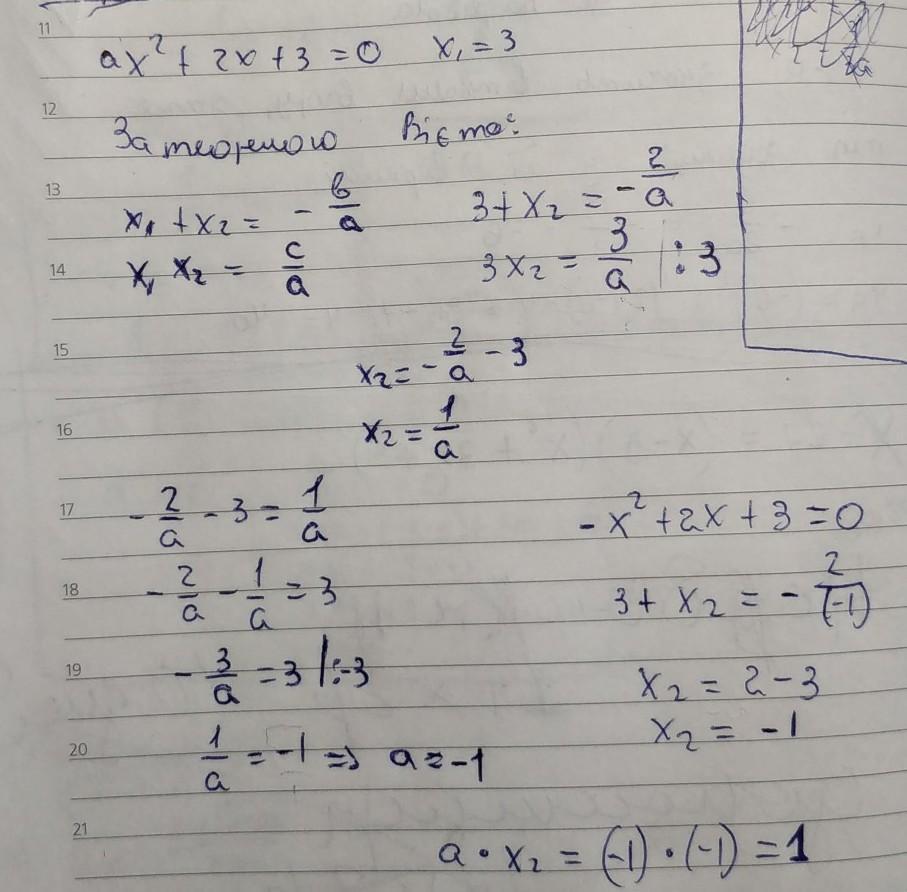 11
ax² + 2x + 3 = 0 x₁ = 3
12
За теоремою Вієта:
13
x₁ + x₂ = - в/a 3 + x₂ = - 2/a
14
x₁ x₂ = c/a 3x₂ = 3/a | : 3
15
x₂ = - 2/a - 3
16
x₂ = 1/a
17
- 2/a - 3 = 1/a - x² + 2x + 3 = 0
18
- 2/a - 1/a = 3 3 + x₂ = - 2/(-1)
19
- 3/a = 3 | : -3 x₂ = 2 - 3
20
1/a = -1 => a = -1 x₂ = -1
21
a · x₂ = (-1) · (-1) = 1